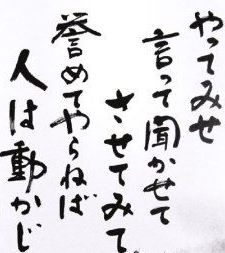 やってみせ
言って聞かせて
させてみて。
誉めてやらねば
人は動かじ